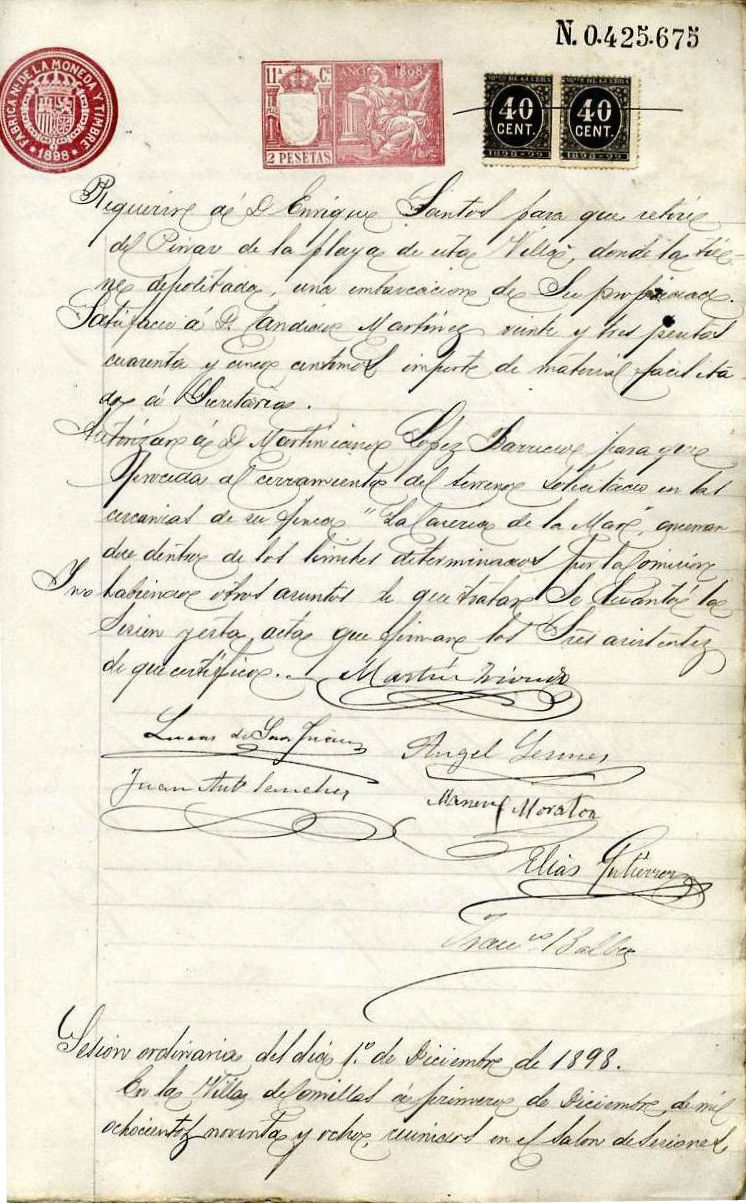 N. 0.425.675
FABRICA NL DE LA MONEDA Y TIMBRE
* 1898 *
11ª C. AÑO 1898
2 PESETAS
40 CENT. 1898-99
40 CENT. 1898-99
Requerir á D. Enrique Santos para que retire
del Pinar de la playa de esta Villa, donde la tie-
ne depositada, una embarcacion de su propiedad.
Satisfacer á D. Martinez veinte y tres pesetas
cuarenta y cinco centimos importe de material facilita
do á Secretaria.
Autorizar á D. Martiniano Lopez para que
proceda al cerramiento del terreno solicitado en las
cercanias de su finca "La de la Mar",
dentro de los limites determinados por la Comision
Y no habiendo otros asuntos de que tratar se levantó la
sesion y esta acta que firman los Sres asistentes
de que certifico.. Martin
Lucas de San Juan
Angel
Juan Antº Sanchez
Manuel Moraton
Elias Gutierrez
Francº Balbas
Sesion ordinaria del dia 1.º de Diciembre de 1898.
En la Villa de Comillas á primero de Diciembre de mil
ochocientos noventa y ocho, reunidos en el salon de sesiones